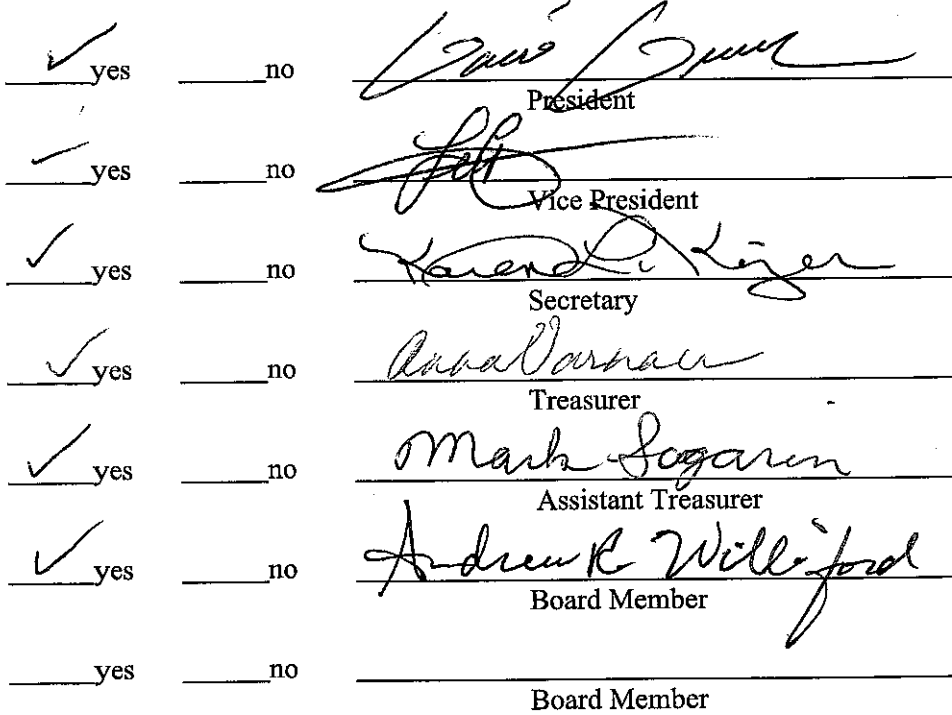 ✓ yes ____ no
President
✓ yes ____ no
Vice President
✓ yes ____ no Karen L. Kizer
Secretary
✓ yes ____ no Anna
Treasurer
✓ yes ____ no Mark Sogaren
Assistant Treasurer
✓ yes ____ no Andrew R Williford
Board Member
____ yes ____ no
Board Member